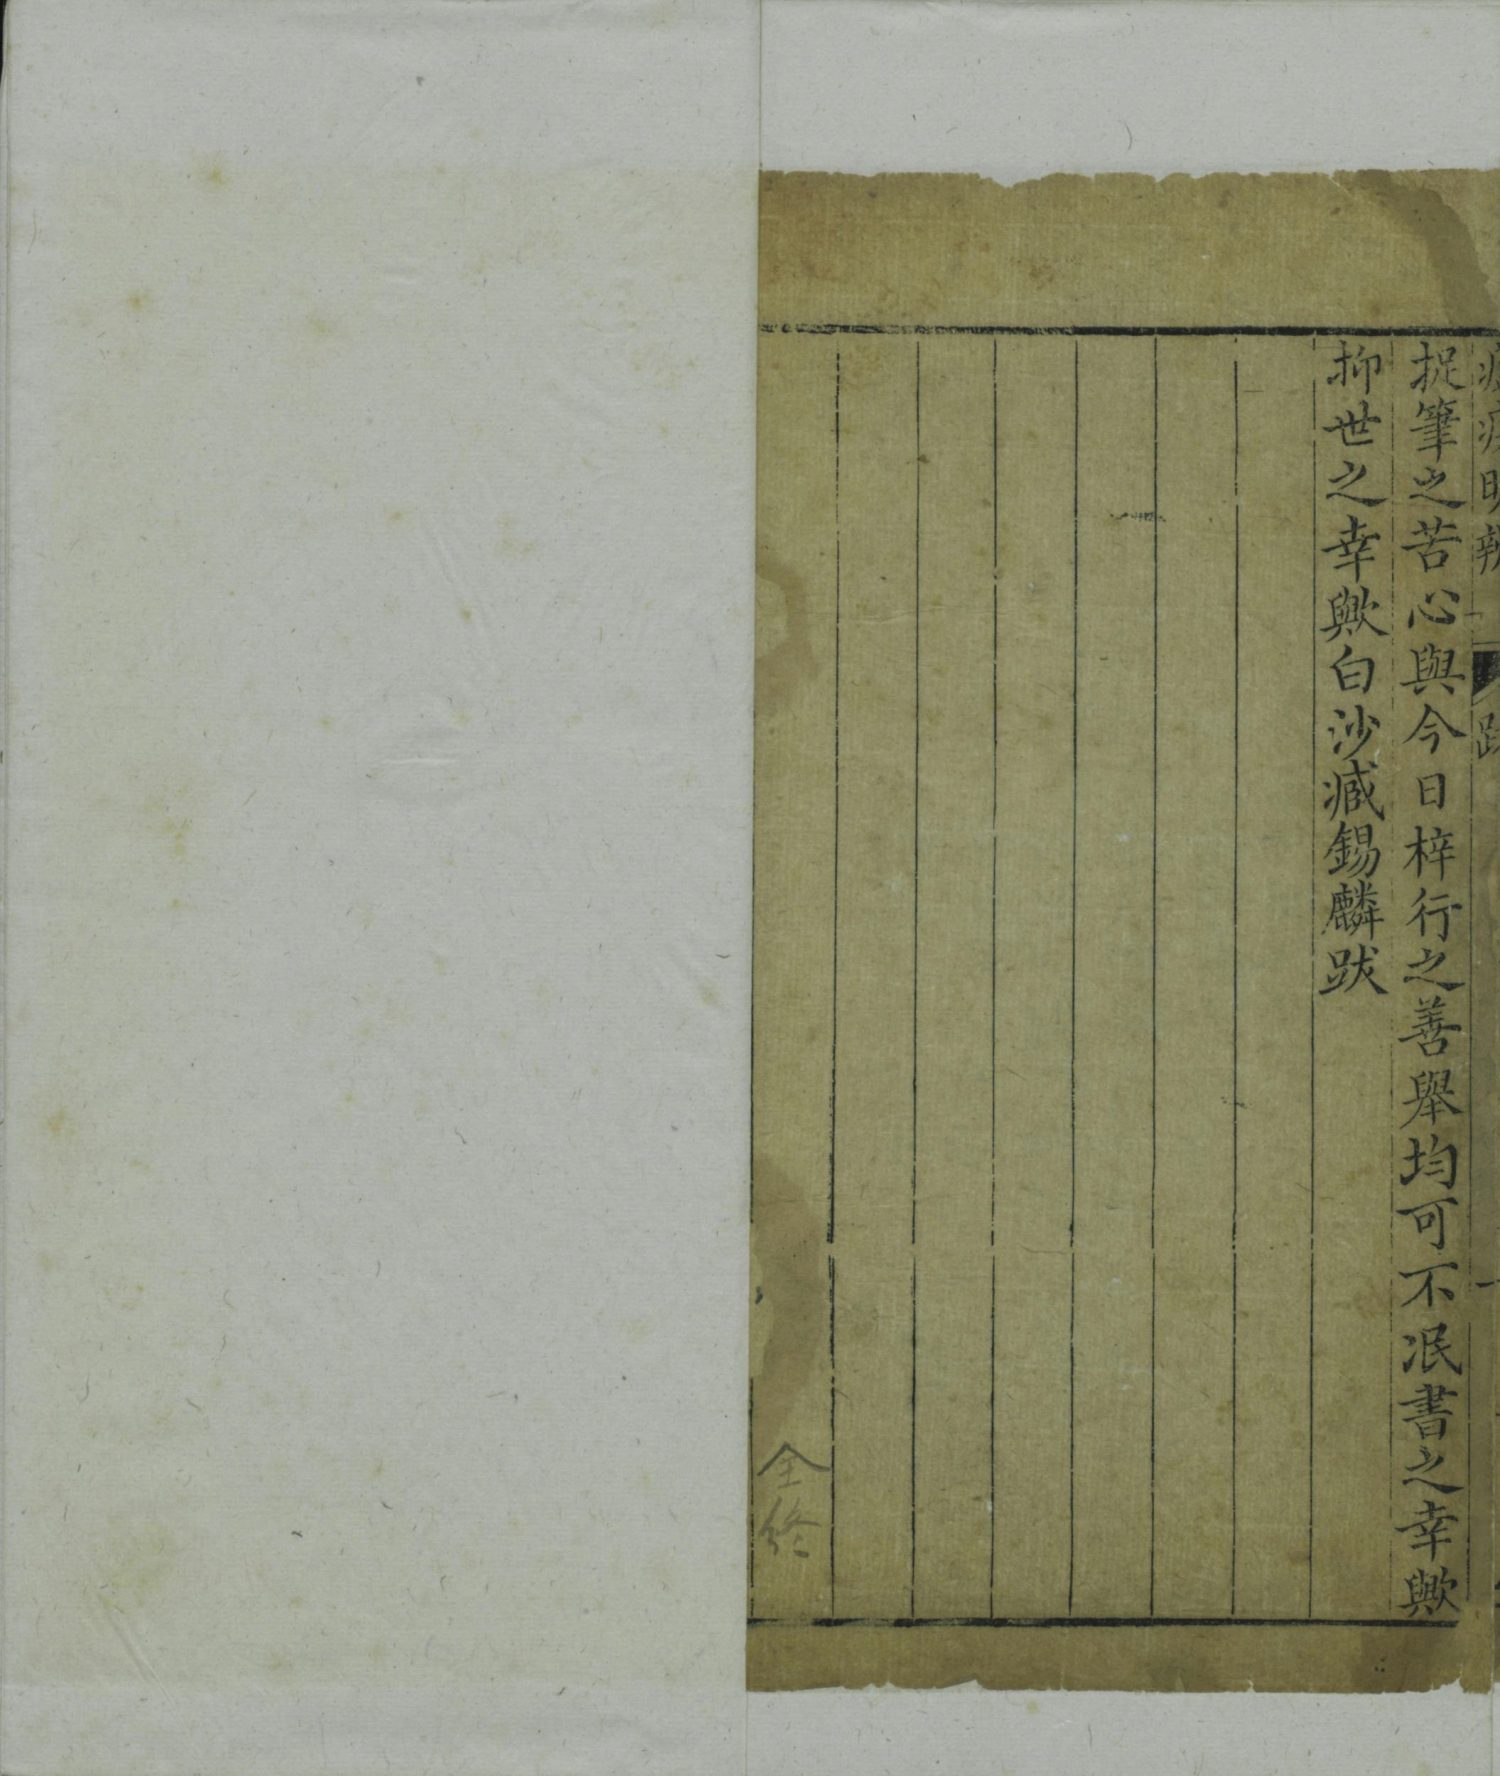 捉筆之苦心與今日梓行之善舉均可不泯書之幸歟
抑世之幸歟白沙臧錫麟跋
全終